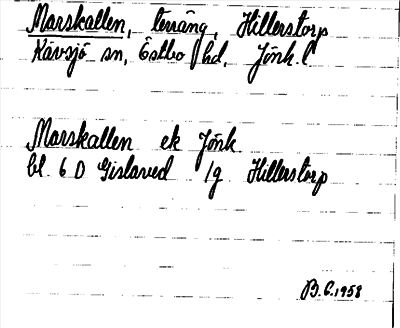 Marskallen, terräng, Hillerstorp
Kävsjö sn, Östbo hd, Jönk. l.
Marskallen ek Jönk.
bl. 6 D Gislaved 1g Hillerstorp
B.C. 1958